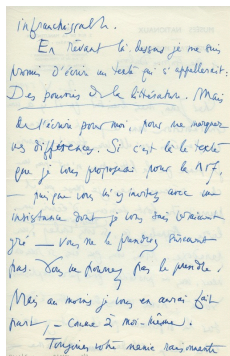 infranchissable.
En rêvant là-dessus je me suis
promis d'écrire un texte qui s'appellerait:
Des pouvoirs de la littérature. Mais
de l'écrire pour moi, pour me marquer
ces différences. Si c'est là le texte
que je vous proposais pour la NRF,
— puisque vous m'y invitez avec une
insistance dont je vous sais vraiment
gré — vous ne le prendrez sûrement
pas. Vous ne pourrez pas le prendre.
Mais au moins je vous en aurai fait
part, — comme à moi-même.
Toujours notre manie raisonnante